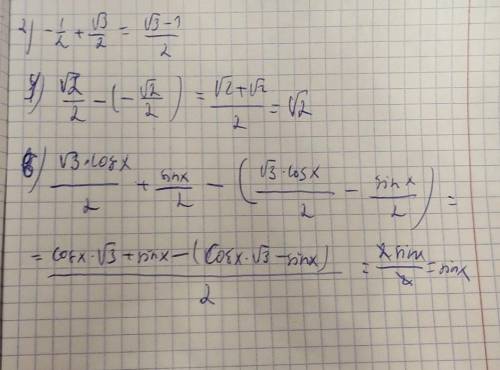 2) -1/2 + √3/2 = (√3-1)/2
4) √2/2 - (-√2/2) = (√2+√2)/2 = √2
6) (√3·cosx)/2 + sinx/2 - ((√3·cosx)/2 - sinx/2) =
= (cosx·√3 + sinx - (cosx·√3 - sinx))/2 = 2sinx/2 = sinx